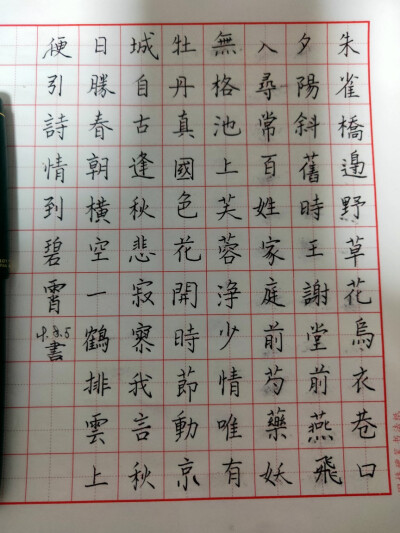 朱雀橋邊野草花烏衣巷口
夕陽斜舊時王謝堂前燕飛
入尋常百姓家庭前芍藥妖
無格池上芙蓉淨少情唯有
牡丹真國色花開時節動京
城自古逢秋悲寂寥我言秋
日勝春朝橫空一鶴排雲上
便引詩情到碧霄
書